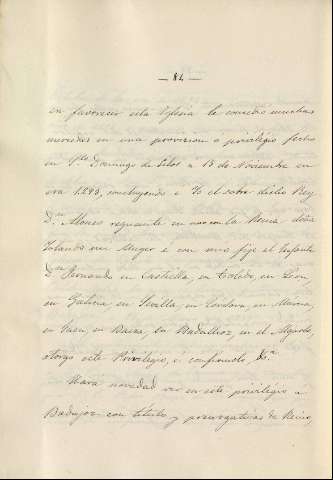 — 84 —
en favorecer esta Iglesia le concedió muchas
mercedes en una provision o privilegio fecho
en S.to Domingo de Silos a 13 de Noviembre en
era 1293, concluyendo: é Yo el sobre dicho Rey
D.n Alonso regnante en uno con la Reina doña
Yolando mi Muger é con mio fijo el Infante
D.n Fernando en Castiella, en Toledo, en Leon,
en Galicia en Sevilla, en Cordova, en Murcia,
en Jaen, en Baeza, en Badalloz, en el Algarbe,
otorgo este Privilegio, é confirmolo, &.a
Rara novedad es en este privilegio a
Badajoz con titulo y prerrogativas de Reino,